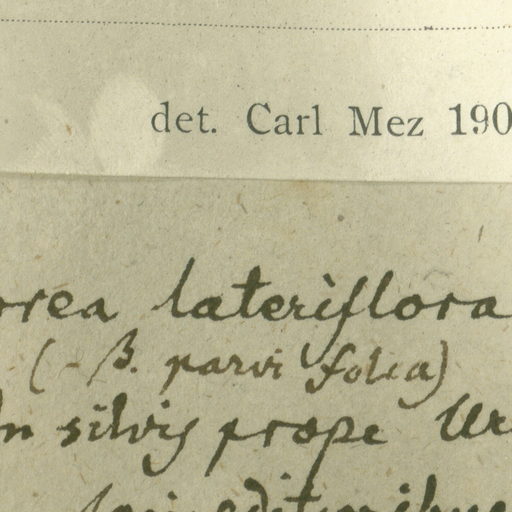 det. Carl Mez 190
rrea lateriflora
(-β. parvifolia)
In silvis prope Ur
editioribus